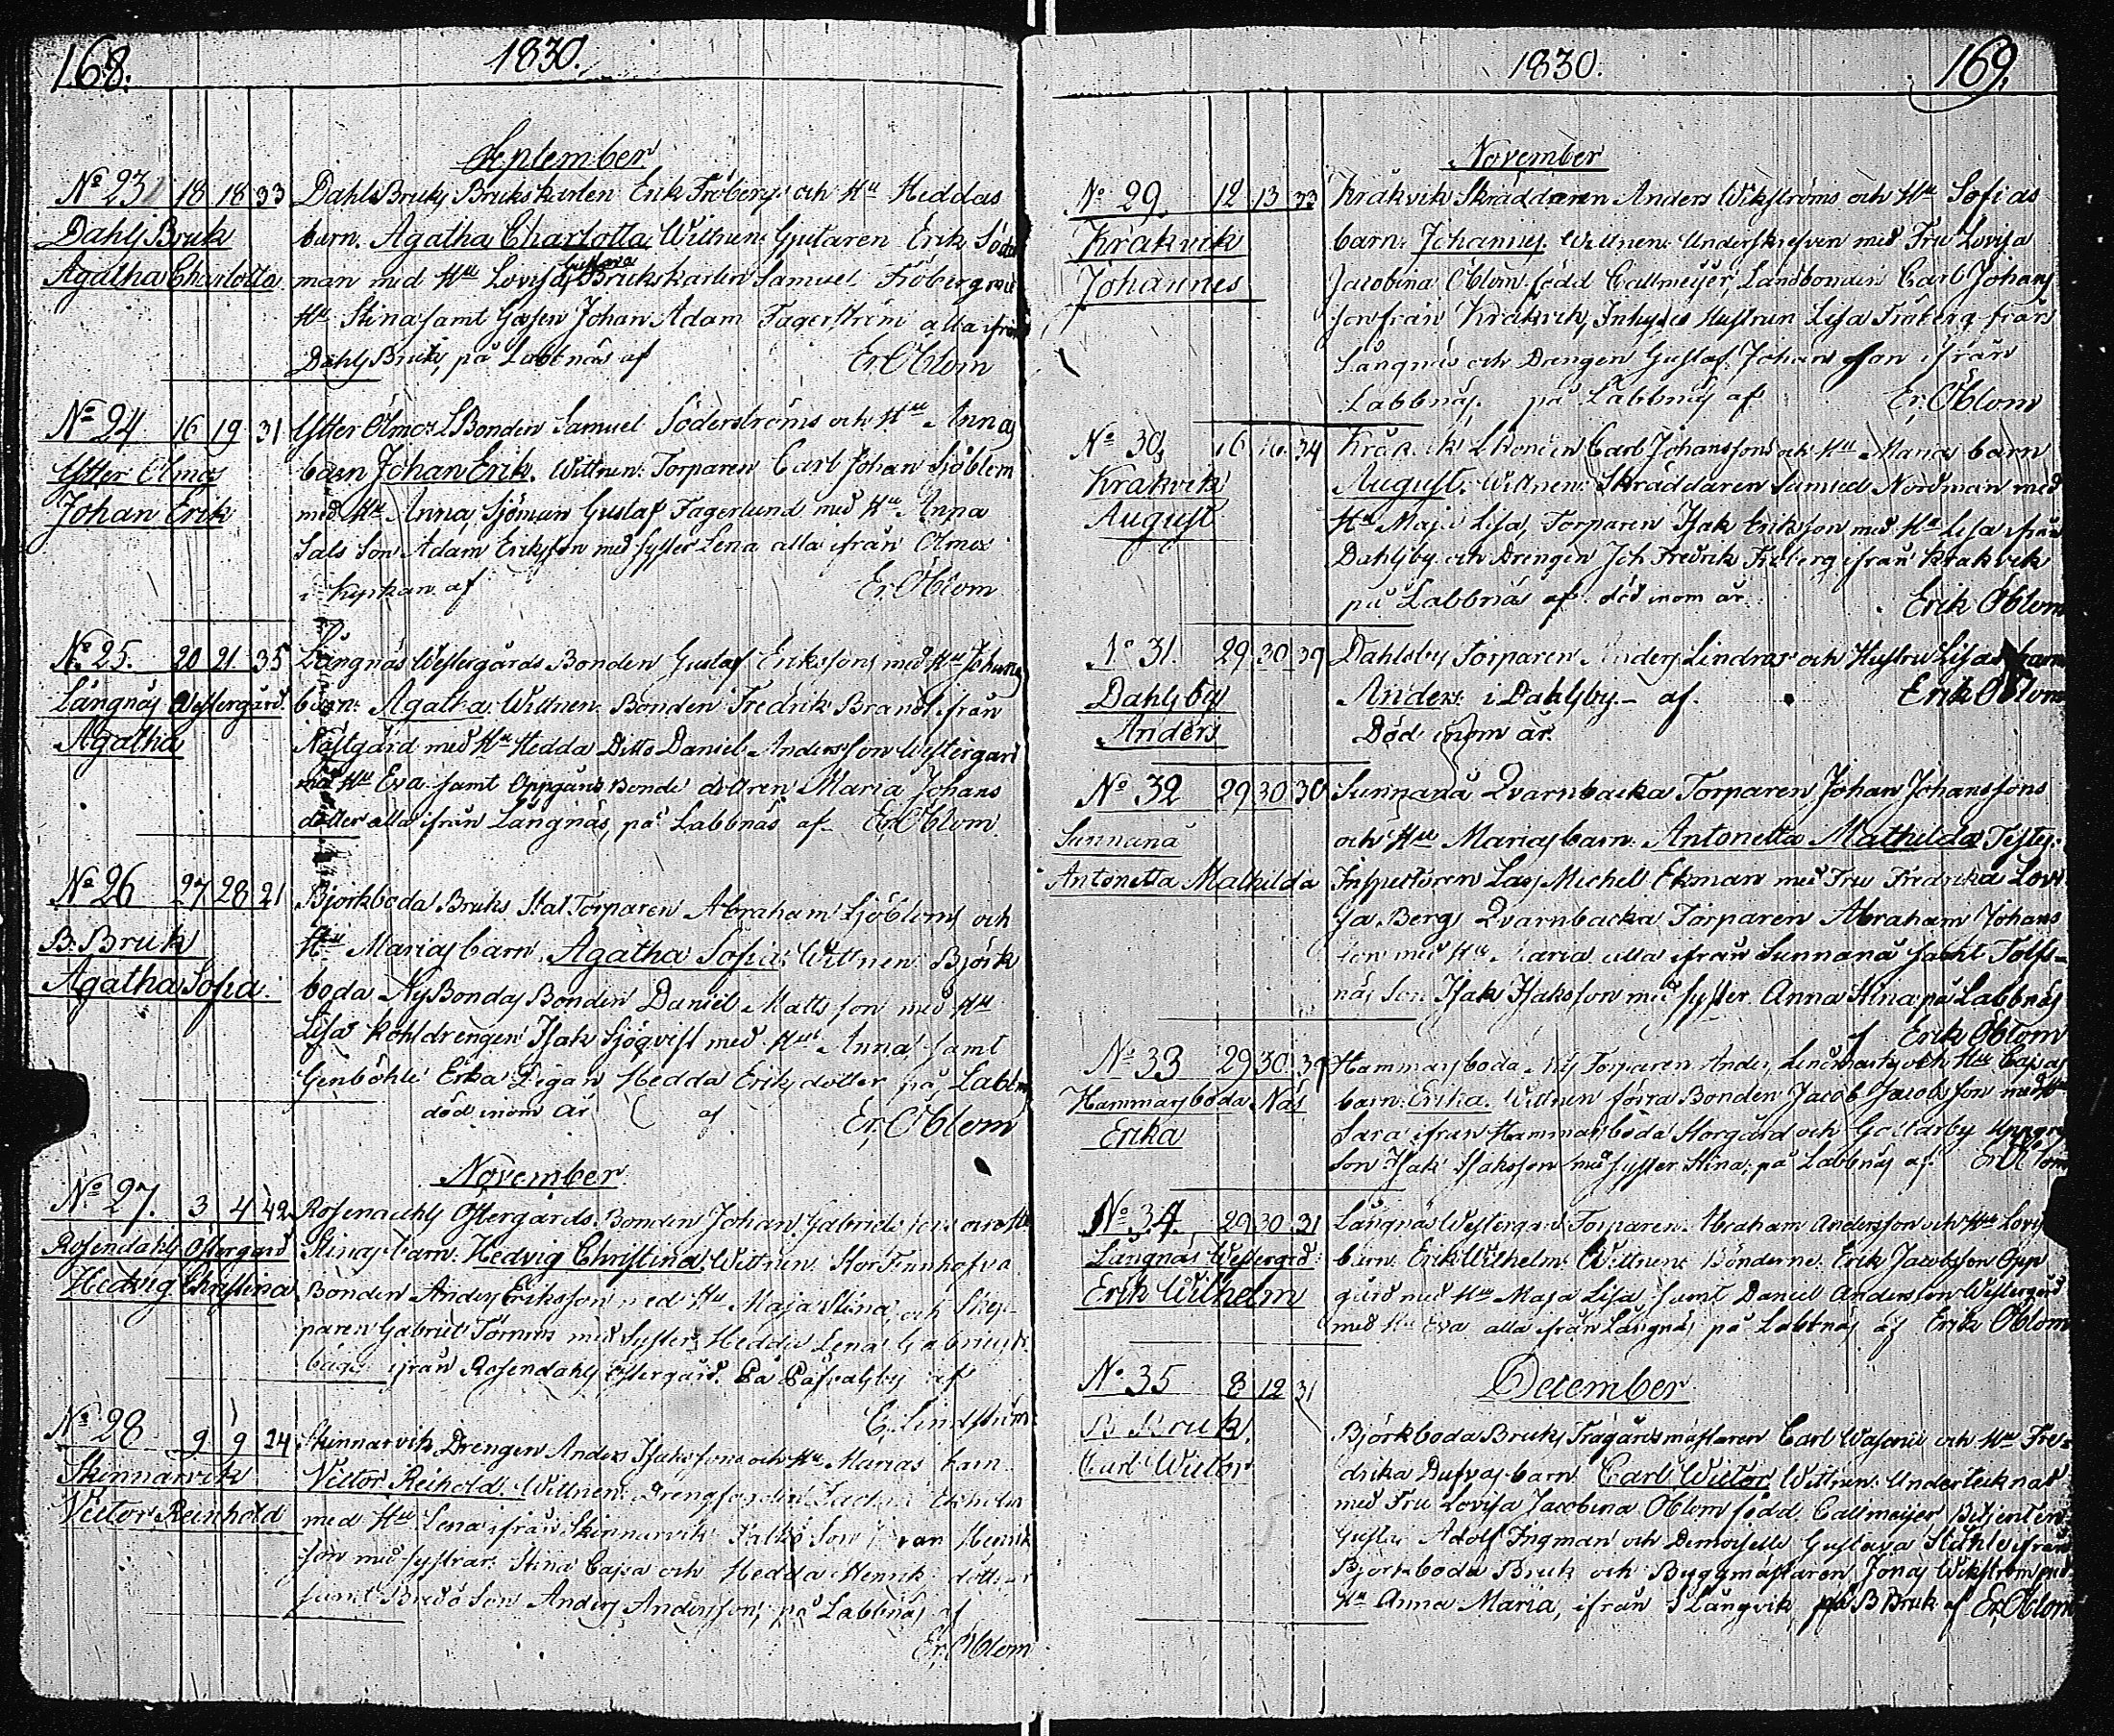 168. 1830.
September
No 23 18 18 33 Dahls Bruks Brukskarlen Erik Fröbergs och Hu Heddas
Dahls Bruk barn. Agatha Charlotta Wittnen: Gjutaren Erik Söder
Agatha Charlotta man med Hu Lovisa Gustava Brukskarlen Samuel Fröberg med
Hu Stina samt Johan Adam Fagerström alla ifrån
Dahls Bruk, på Labbnäs af Er. Öblom
No 24 16 19 31 Ytter Ölmos Bonden Samuel Söderströms och Hu Annas
Ytter Ölmos barn Johan Erik. Wittnen: Torparen Carl Johan Sjöblom
Johan Erik med Hu Anna, Sjöman Gustaf Fagerlund med Hu Anna
Sals Son Adam Eriksson med syster Lena alla ifrån Ölmos
i kyrkan af Er. Öblom
No 25. 20 21 35 Långnäs Westergårds Bonden Gustaf Erikssons med Hu Johannas
Långnäs Westergård barn: Agatha Wittnen: Bonden Fredrik Brandt ifrån
Agatha Nästgård med Hu Hedda Ditto Daniel Andersson Westergård
med Hu Eva samt Oppgårds Bonde dottren Maria Johans
dotter alla ifrån Långnäs, på Labbnäs af Er. Öblom
No 26 27 28 21 Björkboda Bruks Torparen Abraham Sjöbloms och
B. Bruk Hu Marias barn. Agatha Sofia. Wittnen Björk
Agatha Sofia. boda Ny Bondas Bonden Daniel Mattsson med Hu
Lisa Kohldrengen Isak Sjöqvist med Hu Anna samt
Genböhle Erika Pigan Hedda Eriksdotter på Labbnäs
död inom år af Er. Öblom
November
No 27. 3 4 42 Rosendahls Östergårds Bonden Johan Gabriels
Rosendahls Östergård Stinas barn. Hedvig Christina. Wittnen. Stor Finnhofva
Hedvig Christina Bonden Anders Eriksson med Hu Maja Stina, och
paren Gabriel Törnros med Syster Hedda Lena
ifrån Rosendahls Östergård. På Påfvalsby af
E. Lindström
No 28 9 9 24 Skinnarvik Drengen Anders Isakssons och Hu Marias barn
Skinnarvik Victor Reihold. Wittnen:
Victor Reinhold med Hu Lena ifrån Skinnarvik Son Henrik
son med systrar Stina Cajsa och Hedda Henriks döttrar
samt Son Anders Andersson, på Labbnäs af
Er. Öblom
1830. 169.
November
No 29. 12 13 33 Kråkvik Skräddaren Anders Wikströms och Hu Sofias
Kråkvik barn: Johannes. Wittnen: Underskrefven med Fru Lovisa
Johannes Jacobina Öblom född Callmeijer, Landbonden Carl Johans
son från Kråkvik, Inhyses Hustrun Lisa Fröberg från
Långnäs och Drengen Gustaf Johansson ifrån
Labbnäs. på Labbnäs af Er. Öblom
No 30 16 34 Kråkvik Carl Johanssons och Hu Marias barn
Kråkvik August. Wittnen: Skräddaren Samuel Nordman med
August Hu Maja Lisa, Torparen Isak Eriksson med Hu Lisa ifrån
Dahlsby och Drengen Joh Fredrik Fröberg ifrån Kråkvik
på Labbnäs af död inom år Erik Öblom
No 31. 29 30 39 Dahlsby Torparen Anders Lindros och Hustru Lisas barn
Dahlsby Anders i Dahlsby - af. Erik Öblom
Anders Död inom år.
No 32 29 30 30 Sunnanå Qvarnbacka Torparen Johan Johanssons
Sunnanå och Hu Marias barn. Antonetta Mathilda Testes.
Antonetta Mathilda Inspectoren Lars Michel Ekman med Fru Fredrika Lovi
sa Berg, Qvarnbacka Torparen Abraham Johans
son med Hu Maria alla ifrån Sunnanå samt Tolfs-
näs Son Isak Isaksson med syster Anna Stina på Labbnäs
af Erik Öblom
No 33 29 30 39 Hammarsboda Näs Torparen Anders Lindroos och Hu Cajsas
Hammarsboda Näs barn: Erika. Wittnen förra Bonden Jacob Jacobsson med Hu
Erika Sara ifrån Hammarsboda Storgård och Galtarby
Son Isak Isaksson med syster Stina. på Labbnäs af Er. Öblom
No 34. 29 30 31 Långnäs Westergård Torparen Abraham Andersson och Hu Lovisas
Långnäs Westergrd barn. Erik Wilhelm. Wittnen: Bönderne Erik Jacobsson Opp
Erik Wilhelm gård med Hu Maja Lisa samt Daniel Andersson Westergård
med Hu Eva alla ifrån Långnäs på Labbnäs af Erik Öblom
No 35 8 12 31 December
B. Bruk. Björkboda Bruks Trägårdsmästaren Carl och Hu Fre-
Carl Wictor drika Dufvas barn. Carl Wictor. Wittnen: Undertecknad
med Fru Lovisa Jacobina Öblom född Callmeijer Betjenten
Gustav Adolf Ingman och Demoiselle Gustava ifrån
Björkboda Bruk och Byggmästaren Jonas Wikström med
Hu Anna Maria, ifrån Långvik, på B Bruk af Er. Öblom